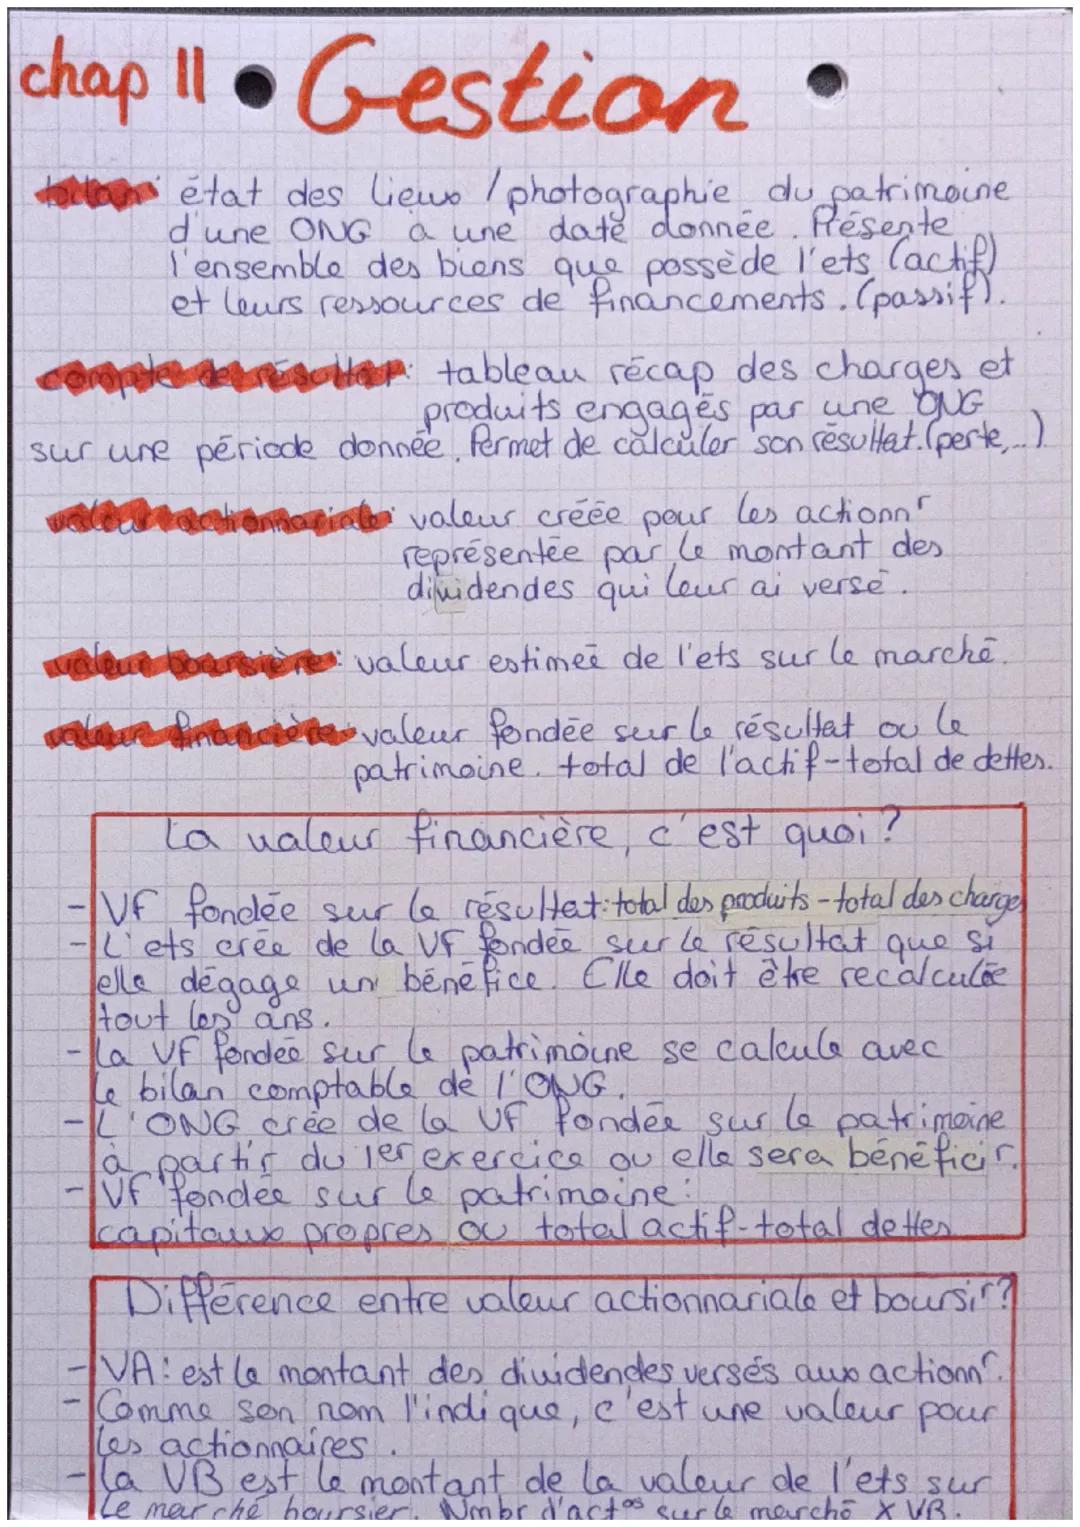 chap 11 Gestion
bilan: état des lieux / photographie du patrimoine
d'une ONG à une date donnée. Présente
l'ensemble des biens que possède l'ets (actif)
et leurs ressources de financements. (passif).
compte de résultat: tableau récap des charges et
produits engagés par une ONG
sur une période donnée. Permet de calculer son résultat. (perte,...)
valeur actionnariale: valeur créée pour les actionnr
représentée par le montant des
dividendes qui leur ai versé.
valeur boursière: valeur estimée de l'ets sur le marché.
valeur financière: valeur fondée sur le résultat ou le
patrimoine. total de l'actif-total de dettes.
La valeur financière, c'est quoi?
- VF fondée sur le résultat: total des produits - total des charge
- L'ets crée de la VF fondée sur le résultat que si
elle dégage un bénéfice. Elle doit être recalculée
tout les ans.
- La VF fondée sur le patrimoine se calcule avec
le bilan comptable de l'ONG.
- L'ONG crée de la VF fondée sur le patrimoine
à partir du 1er exercice ou elle sera bénéficir.
- VF fondée sur le patrimoine:
capitaux propres ou total actif-total dettes
Différence entre valeur actionnariale et boursir?
- VA: est le montant des dividendes versés aux actionnr.
- Comme son nom l'indique, c'est une valeur pour
les actionnaires.
- La VB est le montant de la valeur de l'ets sur
le marché boursier. Nmbr d'actos sur le marché X VB.